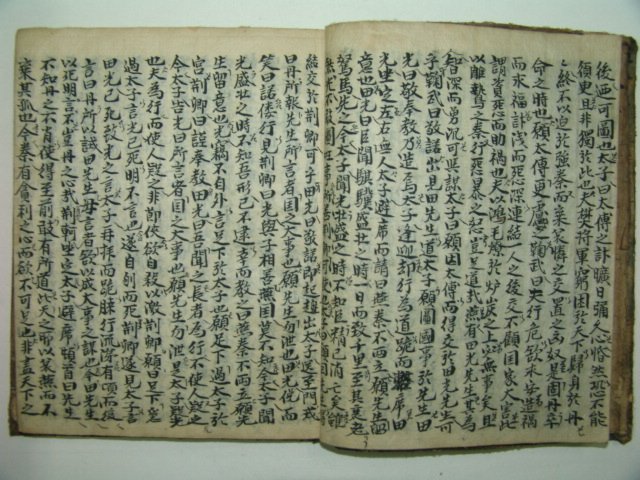 後迺可圖也太子曰太傅之計曠日彌久心惛然恐不能
須臾且非獨於此也夫樊將軍窮困於天下歸身於丹丹
終不以迫於強秦而棄哀憐之交置之匈奴是固丹卒
命之時也願太傅更慮鞠武曰夫行危欲求安造禍
而求福計淺而怨深連結一人之後交不顧國家大害此
謂資怨而助禍也夫以鴻毛燎於炉炭之上必無事矣且
以雕鷙之秦行怨暴之怒豈足道哉燕有田光先生其為
人智深而勇沉可與謀太子曰願因太傅而得交於田先生可
乎鞠武曰敬諾出見田先生道太子願圖國事於先生田
光曰敬奉教乃造焉太子逢迎却行為道跪而席田
光坐定左右無人太子避席而請曰燕秦不兩立願先生留
意也田光曰臣聞騏驥盛壯之時一日而馳千里至其衰老
駑馬先之今太子聞光壯盛之時不知臣精已消亡矣雖
然光不敢圖國事所善荊卿可使也太子曰願因先生
結交於荊卿可乎田光曰敬諾即起趨出太子送至門戒
曰丹所報先生所言者國之大事也願先生勿泄也田光俛而
笑曰諾僂行見荊卿曰光與子相善燕國莫不知今太子聞
光盛壯之時不知吾形已不逮幸而教之曰燕秦不兩立願先
生留意也光竊不自外言足下於太子也願足下過太子於
宮荊卿曰謹奉教田光曰吾聞之長者為行不使人疑之
今太子告光曰所言者國之大事也願先生勿泄是太子疑光
也夫為行而使人疑之非節俠欲自殺以激荊卿曰願足下急
過太子言光已死明不言也遂自刎而死荊卿遂見太子言
田光已死致光之言太子再拜而跪膝行流涕有頃而後
言曰丹所以誡田先生毋言者欲以成大事之謀也今田先生
以死明言不豈丹之心哉荊軻坐定太子避席頓首曰田先生
不知丹之不肖使得至前敢有所道此天之所以哀燕而不
棄其孤也今秦有貪利之心而欲不可足也非盡天下之